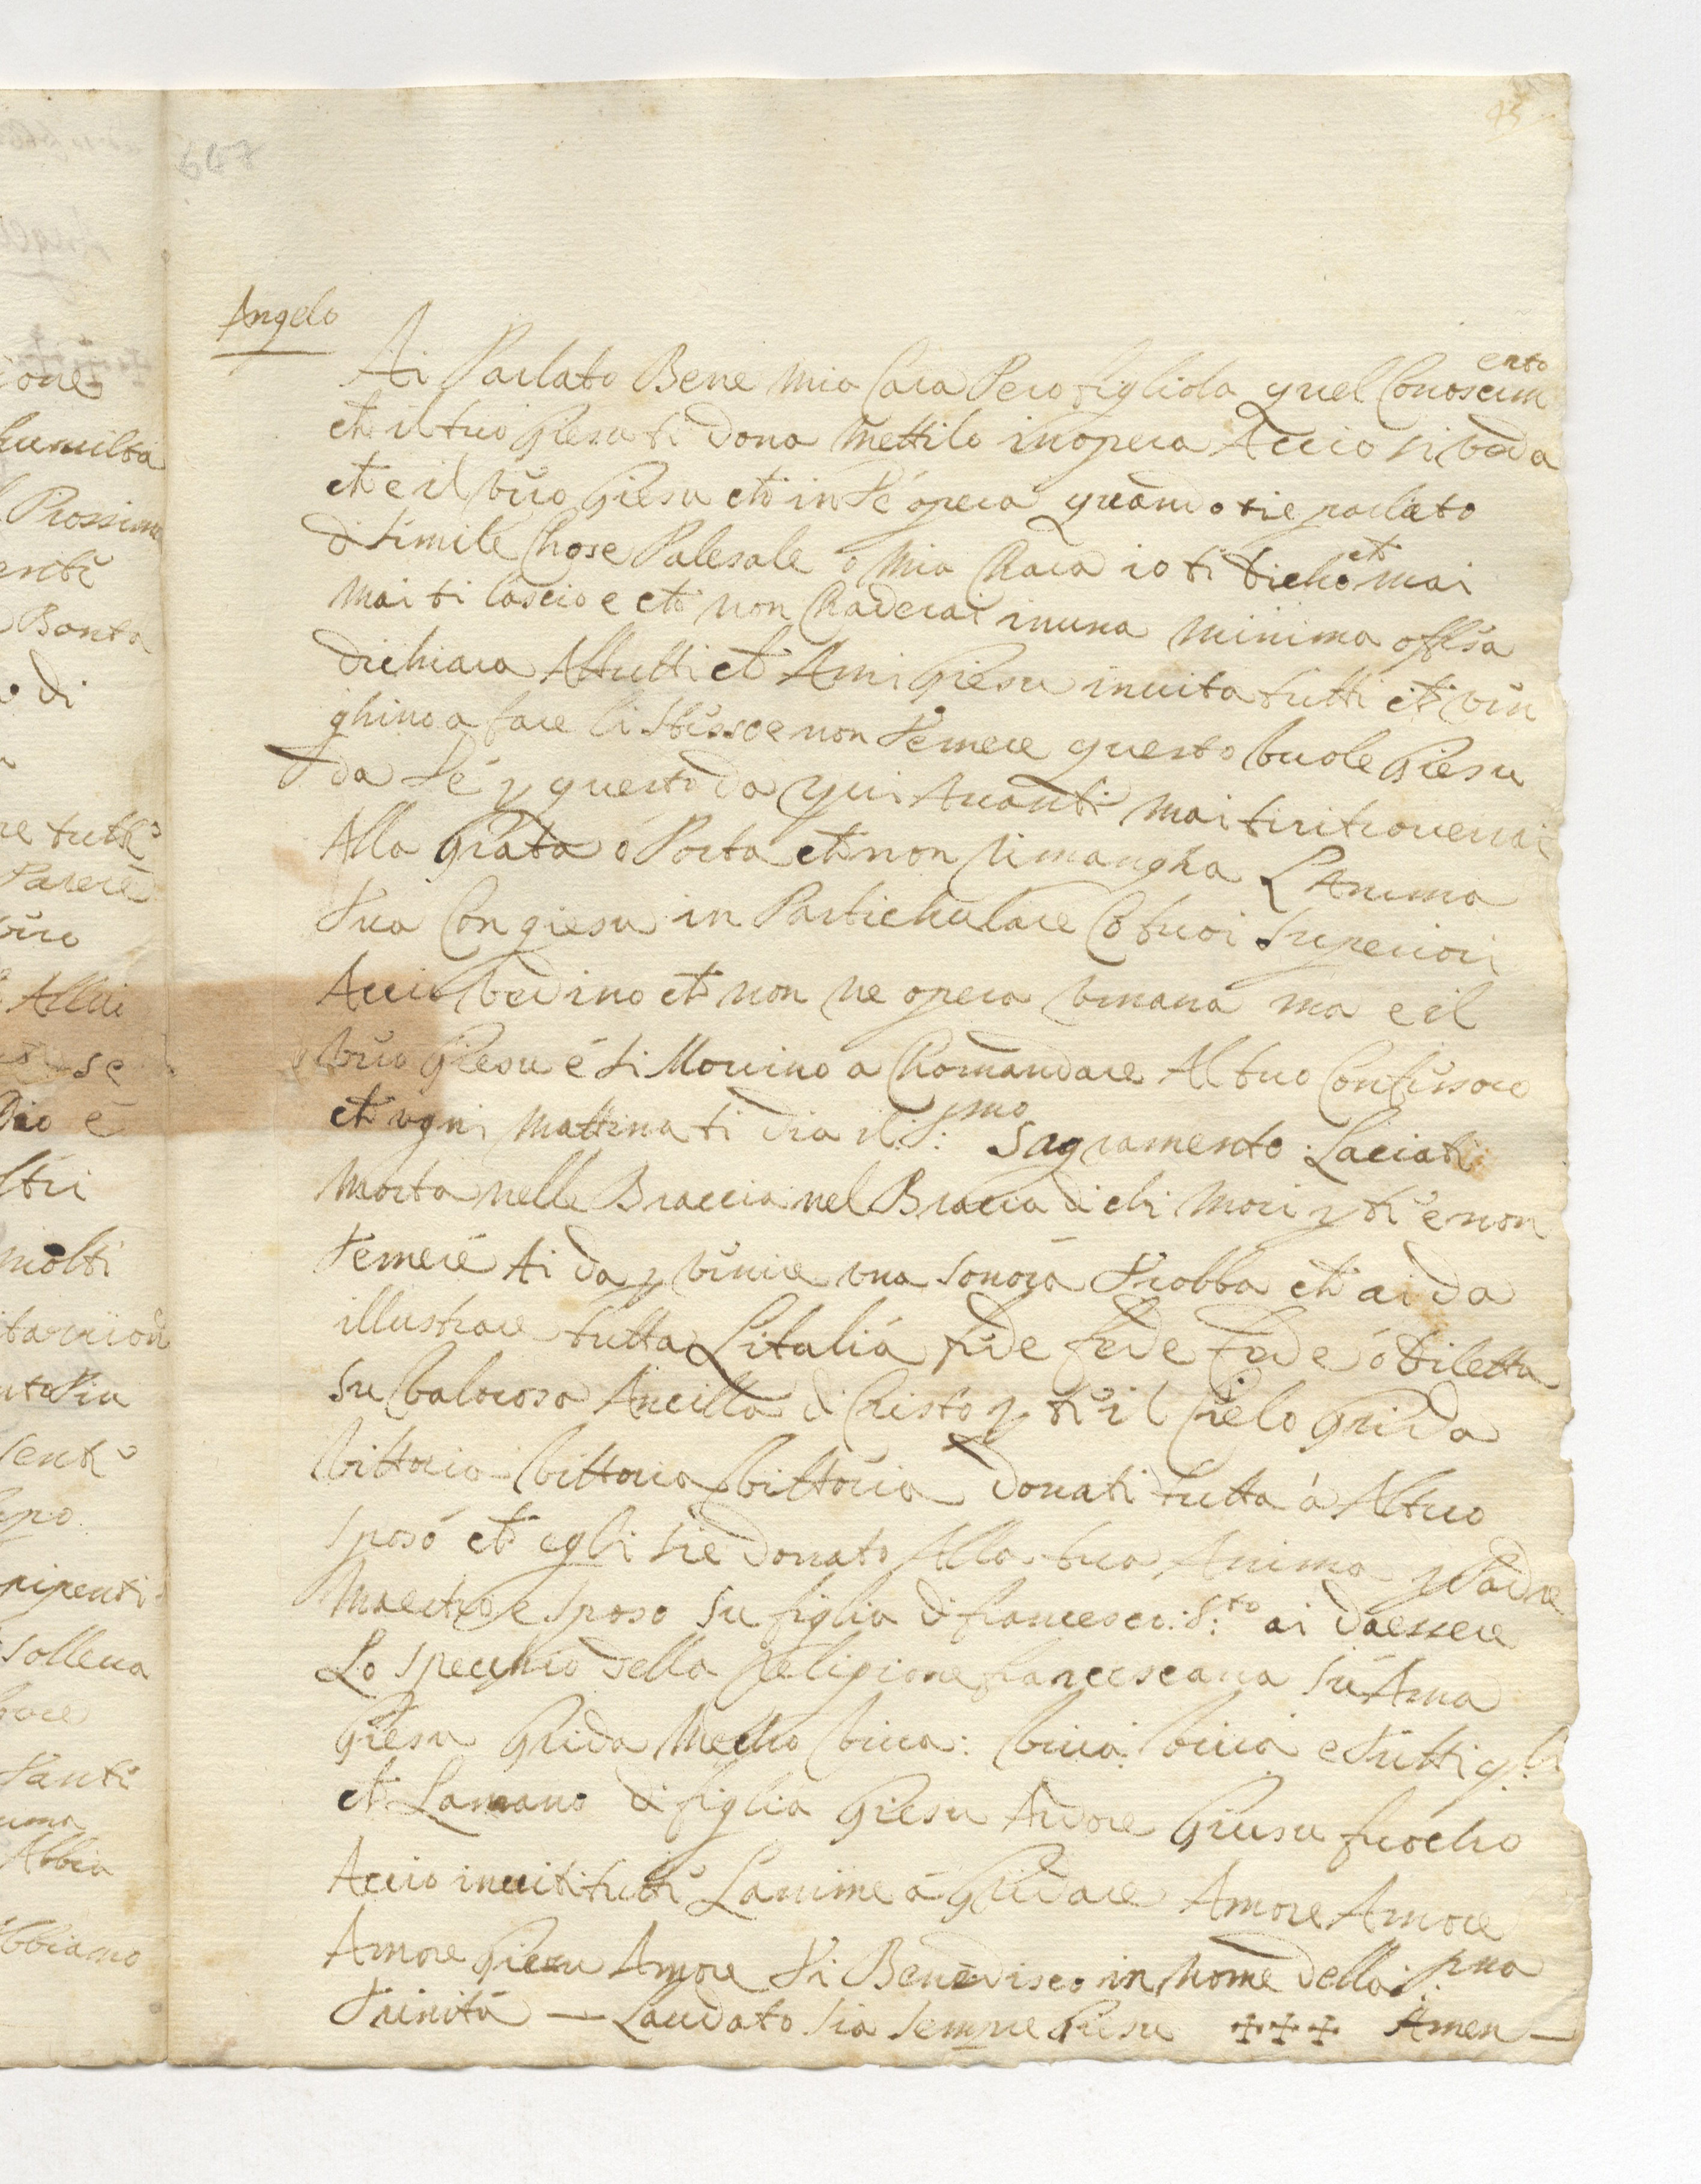 647
Angelo
Ai Parlato Bene mia Cara Pero figliola quel Conoscim
ento
che il tuo Giesu ti dona Mettilo in opera Accio si veda
che e il vivo Giesu che in te opera quando tie parlato
di simile Chose Palesale o mia Chara io ti dicho che mai
mai ti lascio e che non Chaderai in una minima offesa
dichiara Attutti che Ami Giesu invita tutti che ven
ghino a fare li stesso e non temere questo vuole Giesu
da te p questo da qui Avanti mai ti ritroverrai
Alla Grata o Porta che non rimangha L Anima
tua Con giesu in Partichulare Co tuoi Superiori
Accio vedino che non ne opera umana ma e il
vivo Giesu e si Movino a Chomandare Al tuo Confessore
che ogni mattina ti dia il S:smo Sagramento: Laciati
morta nelle Braccia nel Braccia di chi mori p te e non
temere Ai da p venire una sonora tromba che ai da
illustrare tutta Litalia fede fede fede o diletta
su valorosa Ancilla di Cristo p te il Cielo Grida
vittoria vittoria vittoria donati tutta a Altuo
sposo che egli sie donato Alla tua Anima p Padre
Maestro e sposo su figlia di francesco: S:to ai da essere
Lo specchio della Religione franceschana su Ama
Giesu Grida Mecho viva: viva: viva e tutti q:li
che Lamano di figlia Giesu Adore Giesu fuocho
Accio inviti tutte Lanime a Gridare Amore Amore
Amore Giesu Amore ti Benedisco in nome della S:ma
trinita — Laudato sia sempre Giesu +++ Amen —
ione
humilta
Prossimo
ente
Bonta
di
re tutte
Parere
vivo
Allui
se
Dio e
ltri
molti
Pia
sente
solleva
tanti
Abbia
bbiamo